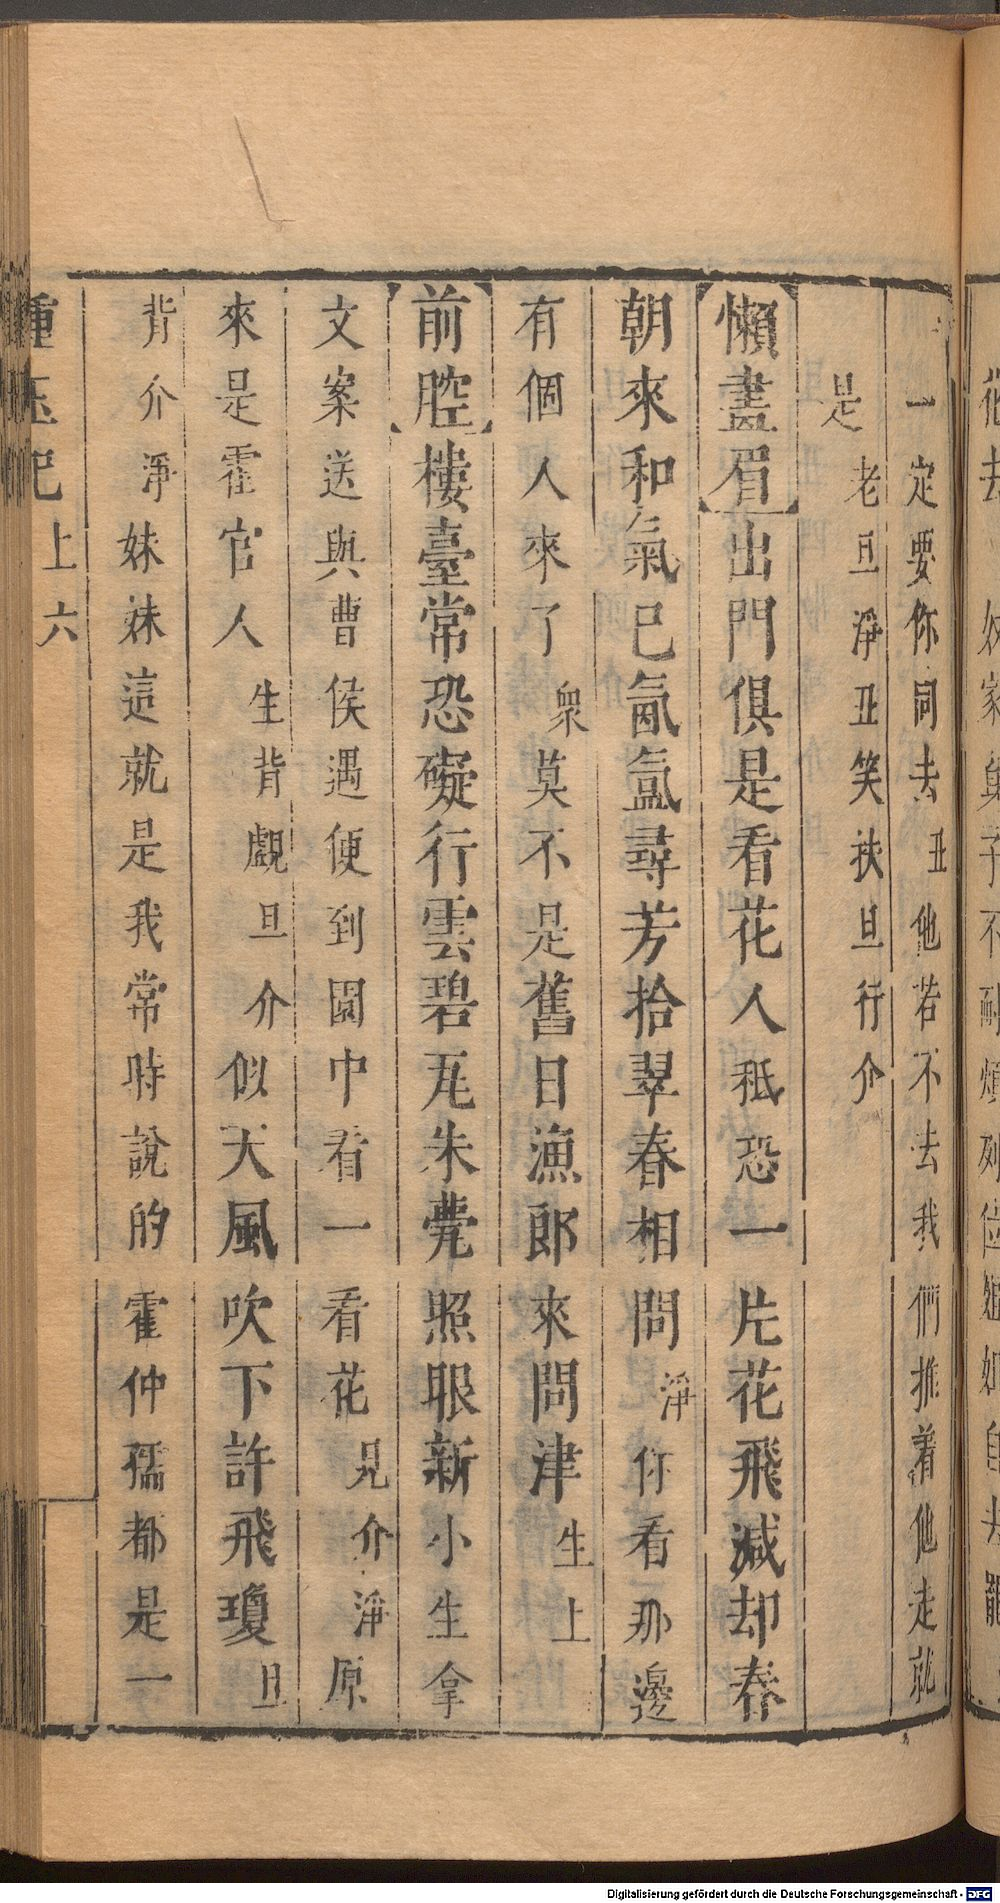 一定要你同去丑他若不去我們推着他走就
是老旦淨丑笑扶旦行介
懶畫眉出門俱是看花人秪恐一片花飛減却春
朝來和氣已氤氳尋芳拾翠春相問淨你看那邊
有個人來了衆莫不是舊日漁郎來問津生上
前腔樓臺常恐礙行雲碧瓦朱甍照眼新小生拿
文案送與曹侯遇便到園中看一看花見介淨原
來是霍官人生背覷旦介似天風吹下許飛瓊旦
背介淨妹妹這就是我常時說的霍仲孺都是一
種玉記上六
Digitalisierung gefördert durch die Deutsche Forschungsgemeinschaft - DFG